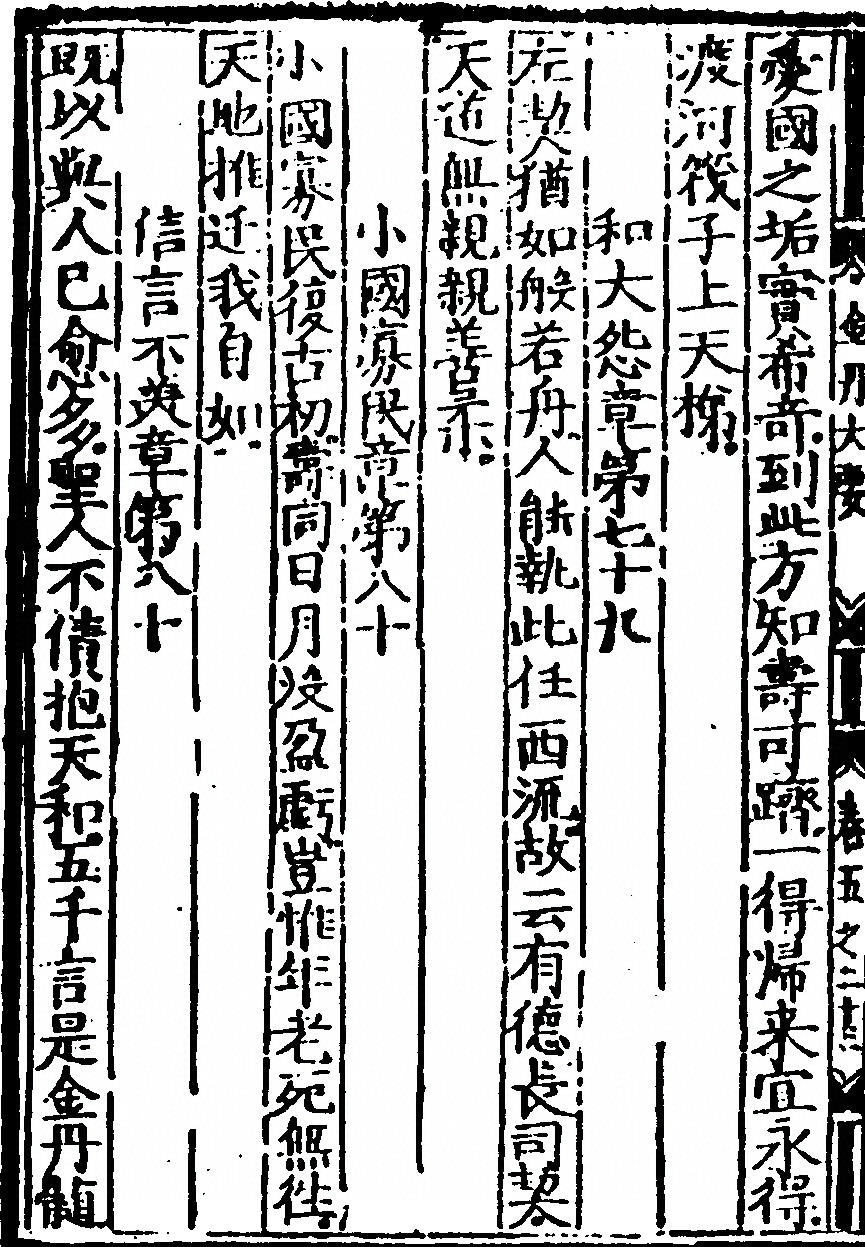 受國之垢實希竒到此方知壽可躋一得歸来宜永得
渡河筏子上天梯
和大怨章第七十九
左契猶如般若舟人能執此任西流故云有德長司契
天道無親親善柔
小國寡民章第八十
小國寡民復古初壽同日月没盈虧豈惟年老死無徃
天地推迁我自如
信言不美章第八十
既以與人已愈多聖人不積抱天和五千言是金丹髓
金丹大要 卷五之二十